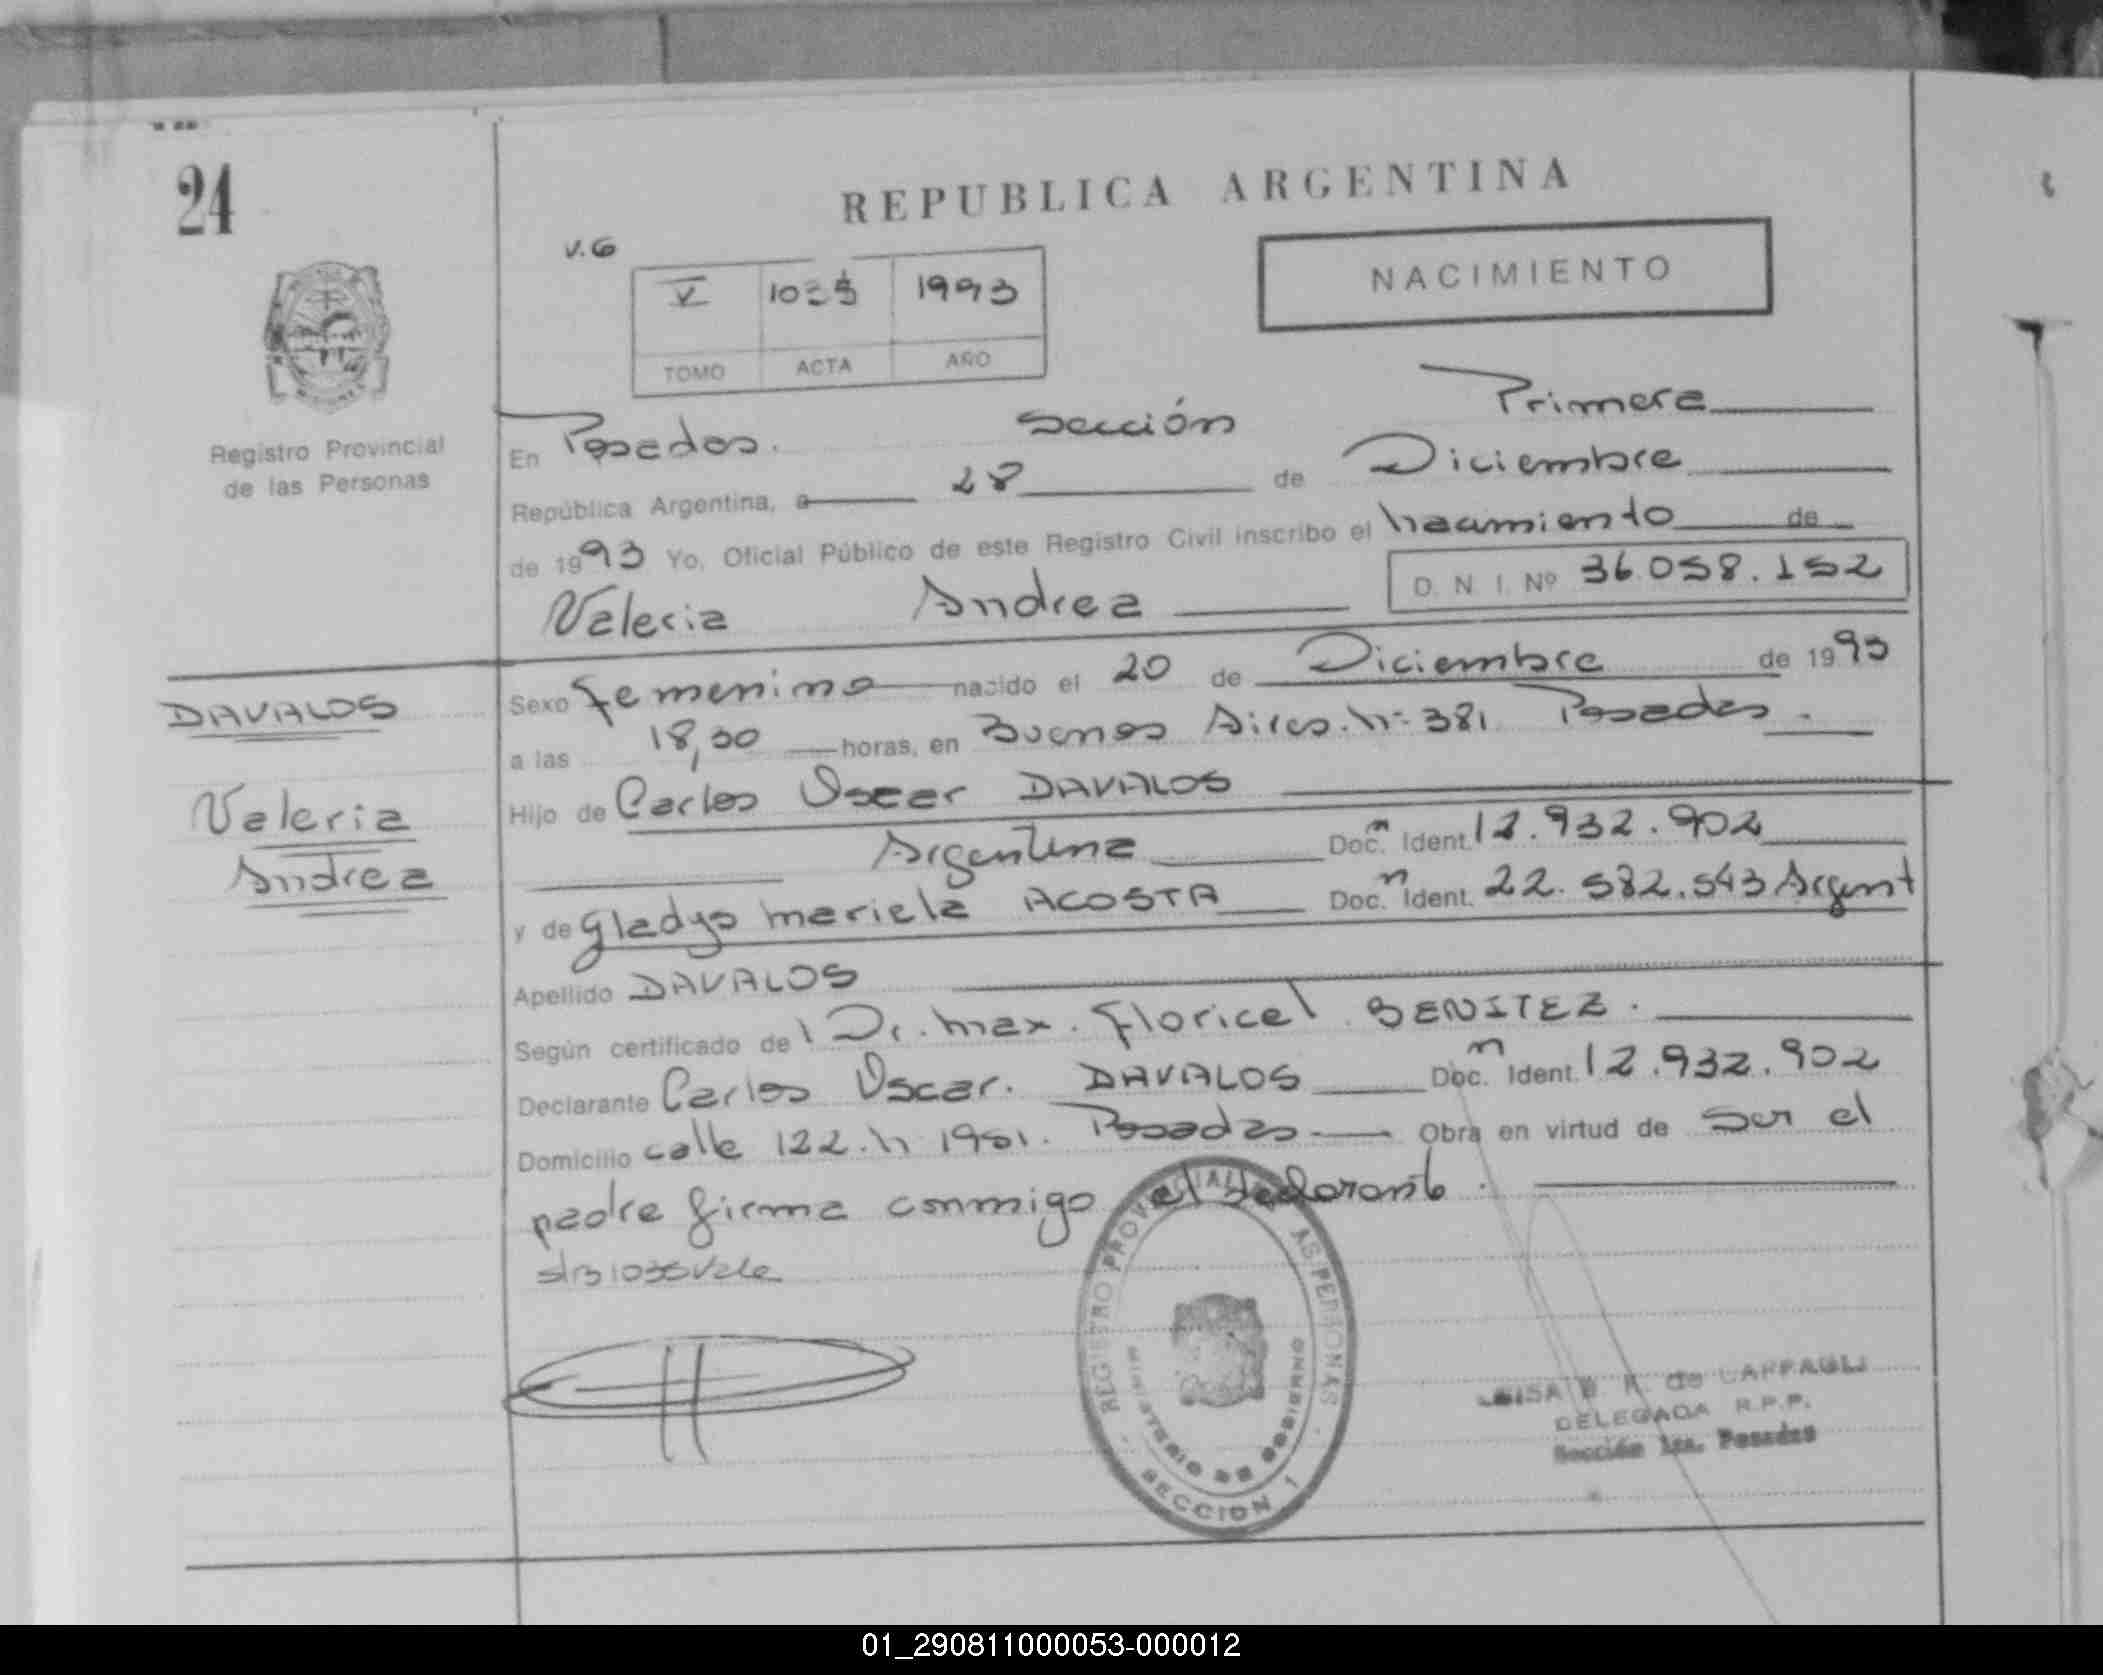 24
REPUBLICA ARGENTINA
V.6
V 1035 1993
TOMO ACTA AÑO
NACIMIENTO
Registro Provincial
de las Personas
En Posadas. Sección Primera
República Argentina, a 28 de Diciembre
de 1993 Yo, Oficial Público de este Registro Civil inscribo el nacimiento de
D. N. I. Nº 36.058.152
Valeria Andrea
DAVALOS
Valeria
Andrea
Sexo femenino nacido el 20 de Diciembre de 1993
a las 18,30 horas, en Buenos Aires. Nº 381 Posadas.
Hijo de Carlos Oscar DAVALOS
Argentina Doc. n Ident. 12.932.902
y de Gladys Mariela ACOSTA Doc. n Ident. 22.582.543 Argent
Apellido DAVALOS
Según certificado del Dr. Max. Floricel BENITEZ.
Declarante Carlos Oscar. DAVALOS Doc. n Ident. 12.932.902
Domicilio calle 122. N 1981. Posadas Obra en virtud de ser el
padre firma conmigo el declarante.
s/b 1035 Vale
REGISTRO PROVINCIAL AS PERSONAS
MINISTERIO DE GOBIERNO
SECCION 1
DELEGADA R.P.P.
Sección 1ra. Posadas
01_290811000053-000012